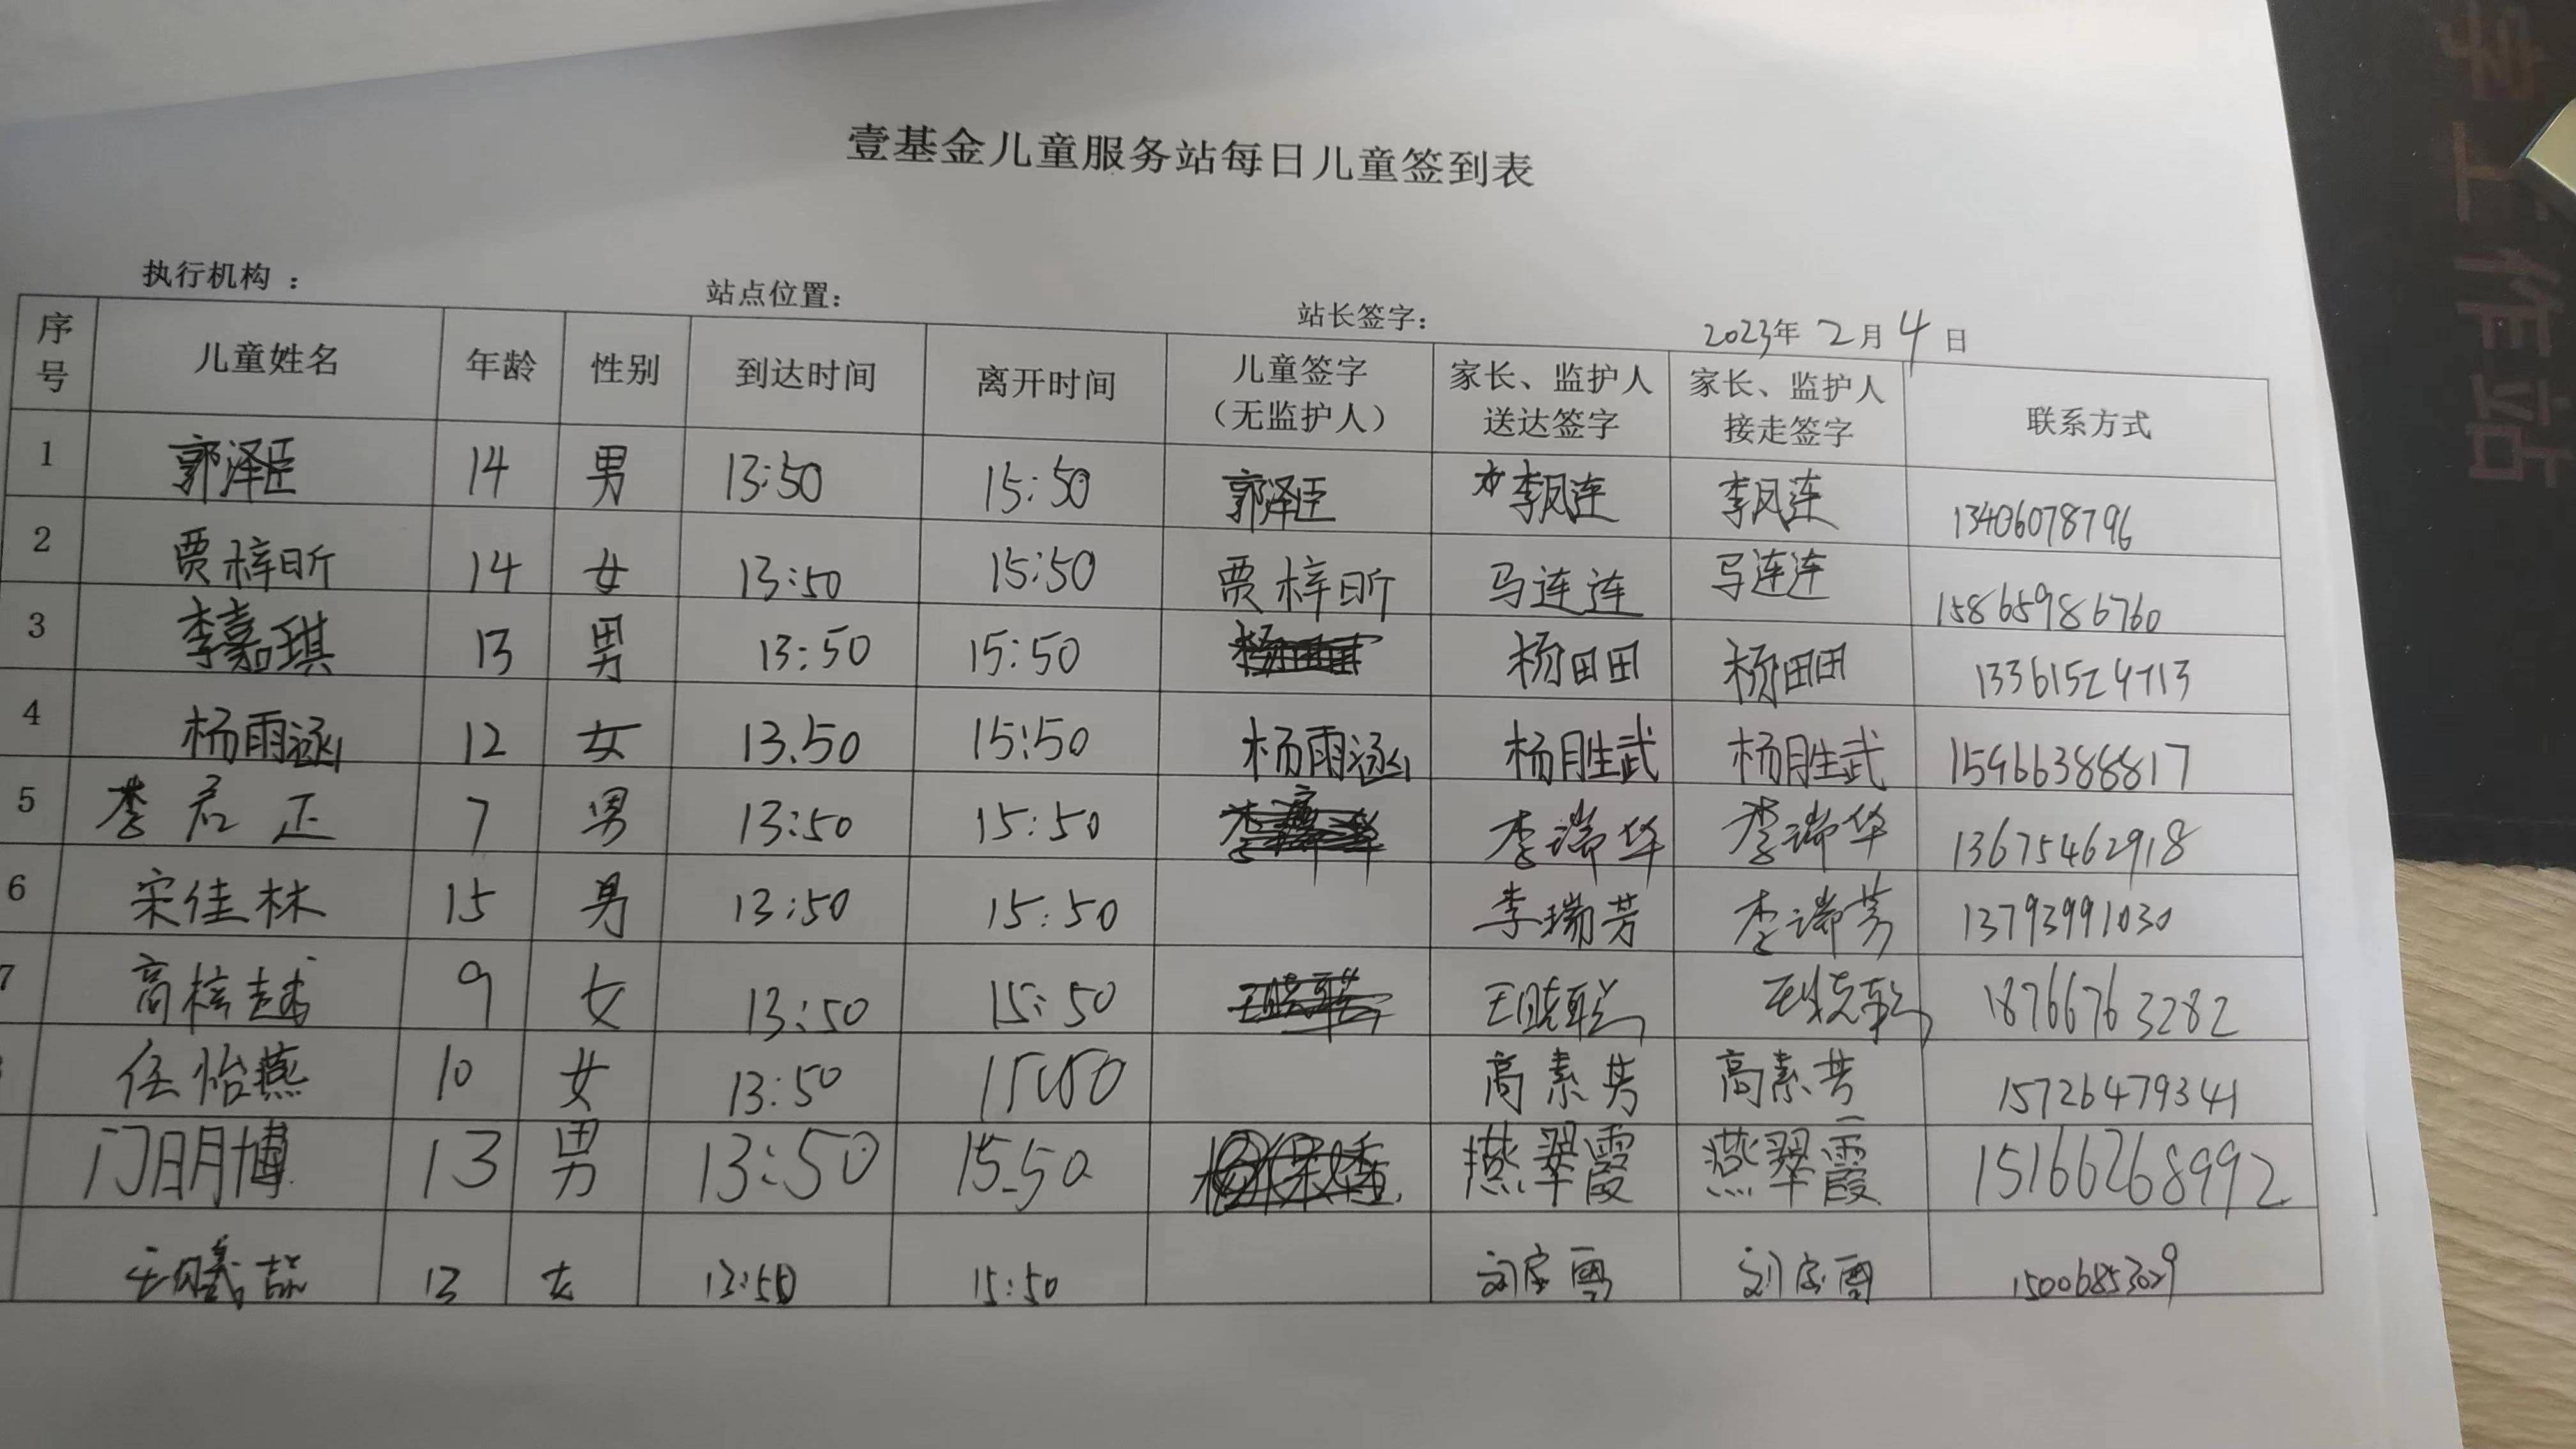 壹基金儿童服务站每日儿童签到表
执行机构： 站点位置： 站长签字： 2023年 2月 4日
序号 儿童姓名 年龄 性别 到达时间 离开时间 儿童签字（无监护人） 家长、监护人送达签字 家长、监护人接走签字 联系方式
1 郭泽臣 14 男 13:50 15:50 郭泽臣 李凤连 李凤连 13406078796
2 贾梓昕 14 女 13:50 15:50 贾梓昕 马连连 马连连 15865986760
3 李嘉琪 13 男 13:50 15:50 杨田田 杨田田 13361524713
4 杨雨涵 12 女 13.50 15:50 杨雨涵 杨胜武 杨胜武 15966388817
5 李君正 7 男 13:50 15:50 李瑞华 李瑞华 13675462918
6 宋佳林 15 男 13:50 15:50 李瑞芳 李瑞芳 13793991030
7 高梓越 9 女 13:50 15:50 王晓聪 18766763282
任怡燕 10 女 13:50 15:50 高素芳 高素芳 15726479341
门明博 13 男 13:50 15.50 燕翠霞 燕翠霞 15166268992
13 女 13:50 15:50 15006853029
工作站